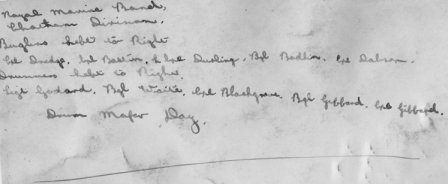 Royal Marine Band,
Chatham Division.
Buglers left to Right
Cpl Dodge, Cpl Batten, L Cpl Dudling, Bgl Badlin, Cpl Dobson.
Drummers left to Right.
Sigt Godard, Bgl Waite, Cpl Blackgrove, Bgl Gibbard, Cpl Gibbard.
Drum Major Day.